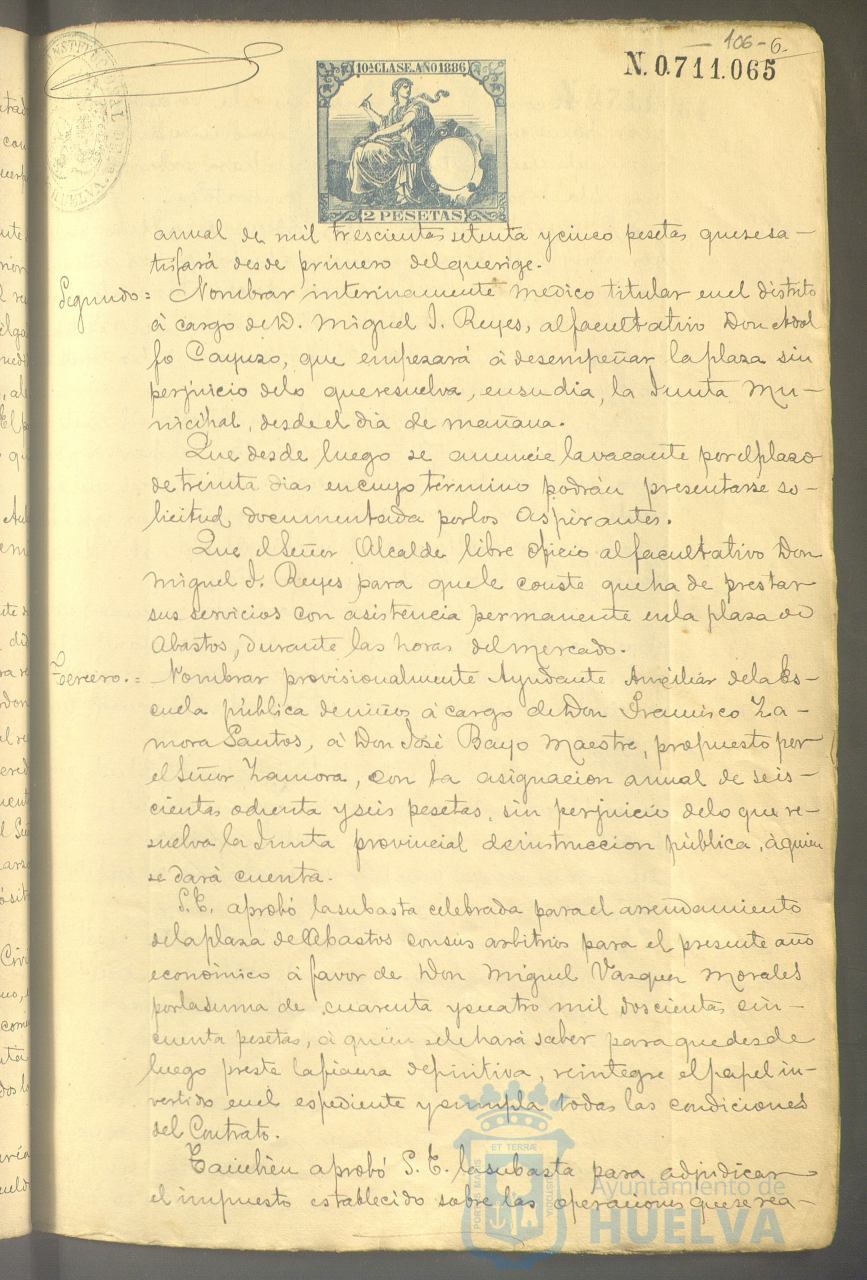 106-6.
10ª CLASE. AÑO 1886
N. 0.711.065
2 PESETAS
anual de mil trescientas setenta y cinco pesetas que se sa-
tisfará desde primero del que rige.
Segundo = Nombrar interinamente medico titular en el distrito
á cargo de D. Miguel I. Reyes, al facultativo Don Adol
fo Cayuzo, que empezará á desempeñar la plaza sin
perjuicio de lo que resuelva, en su dia, la Junta Mu-
nicipal, desde el dia de mañana.
Que desde luego se anuncie la vacante por el plazo
de treinta dias en cuyo término podrán presentarse so-
licitud documentada por los Aspirantes.
Que el Señor Alcalde libre oficio al facultativo Don
Miguel I. Reyes para que le conste que ha de prestar
sus servicios con asistencia permanente en la plaza de
Abastos, durante las horas del mercado.
Tercero. = Nombrar provisionalmente Ayudante Auxiliar de la Es-
cuela pública de niños á cargo de Don Francisco Za-
mora Santos, á Don José Bayo Maestre, propuesto por
el Señor Zamora, con la asignacion anual de seis-
cientas ochenta y seis pesetas, sin perjuicio de lo que re-
suelva la Junta provincial de instruccion pública, á quien
se dará cuenta.
S. E. aprobó la subasta celebrada para el arrendamiento
de la plaza de Abastos con sus arbitrios para el presente año
económico á favor de Don Miguel Vazquez Morales
por la suma de cuarenta y cuatro mil doscientas cin-
cuenta pesetas, á quien se le hará saber para que desde
luego preste la fianza definitiva, reintegre el papel in-
vertido en el espediente y cumpla todas las condiciones
del Contrato.
Tambien aprobó S. E. la subasta para adjudicar
el impuesto establecido sobre las operaciones que se rea-
ET TERRÆ
PORTUS MARIS
CUSTODIA
Ayuntamiento de
HUELVA